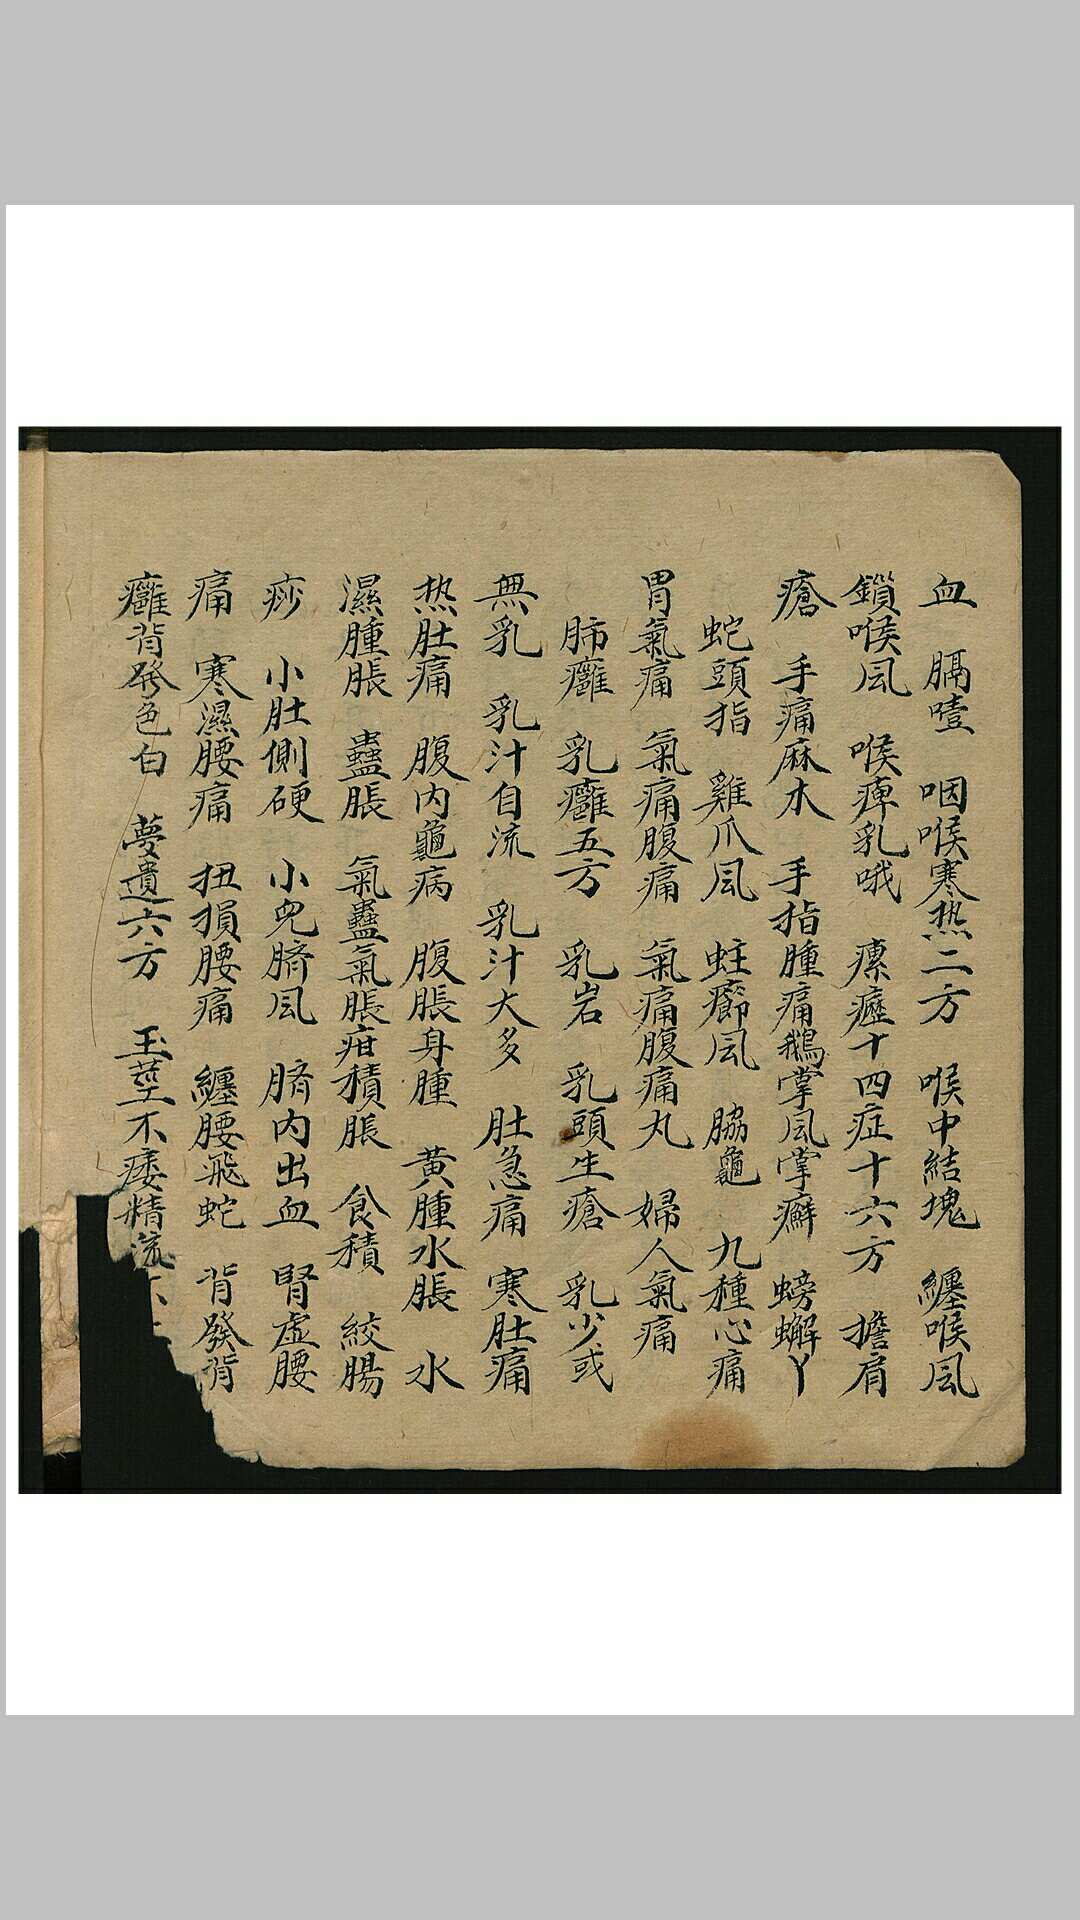 血 膈噎 咽喉寒热二方 喉中結塊 纏喉風
鎖喉風 喉痺乳哦 瘰癧十四症十六方 擔肩
瘡 手痛麻木 手指腫痛鵝掌風掌癬 螃蠏丫
蛇頭指 雞爪風 蛀癤風 脇龜 九種心痛
胃氣痛 氣痛腹痛 氣痛腹痛丸 婦人氣痛
肺癰 乳癰五方 乳岩 乳頭生瘡 乳少或
無乳 乳汁自流 乳汁大多 肚急痛 寒肚痛
热肚痛 腹内龜病 腹脹身腫 黄腫水脹 水
濕腫脹 蠱脹 氣蠱氣脹疳積脹 食積 絞腸
痧 小肚側硬 小兒臍風 臍内出血 腎虛腰
痛 寒濕腰痛 扭損腰痛 纏腰飛蛇 背發背
癰背發色白 夢遺六方 玉莖不痿精流